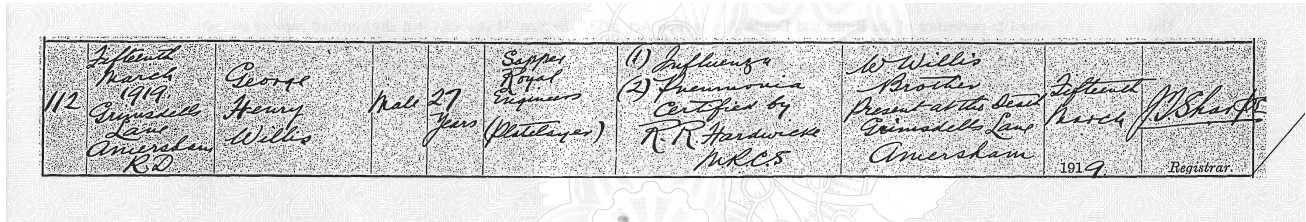 112
Fifteenth
March
1919
Grimsdells
Lane
Amersham
R.D
George
Henry
Willis
Male
27
Years
Sapper
Royal
Engineers
(Platelayer)
(1) Influenza
(2) Pneumonia
Certified by
R. R. Hardwicke
M.R.C.S
W Willis
Brother
Present at the Death
Grimsdells Lane
Amersham
Fifteenth
March
1919.
Registrar.